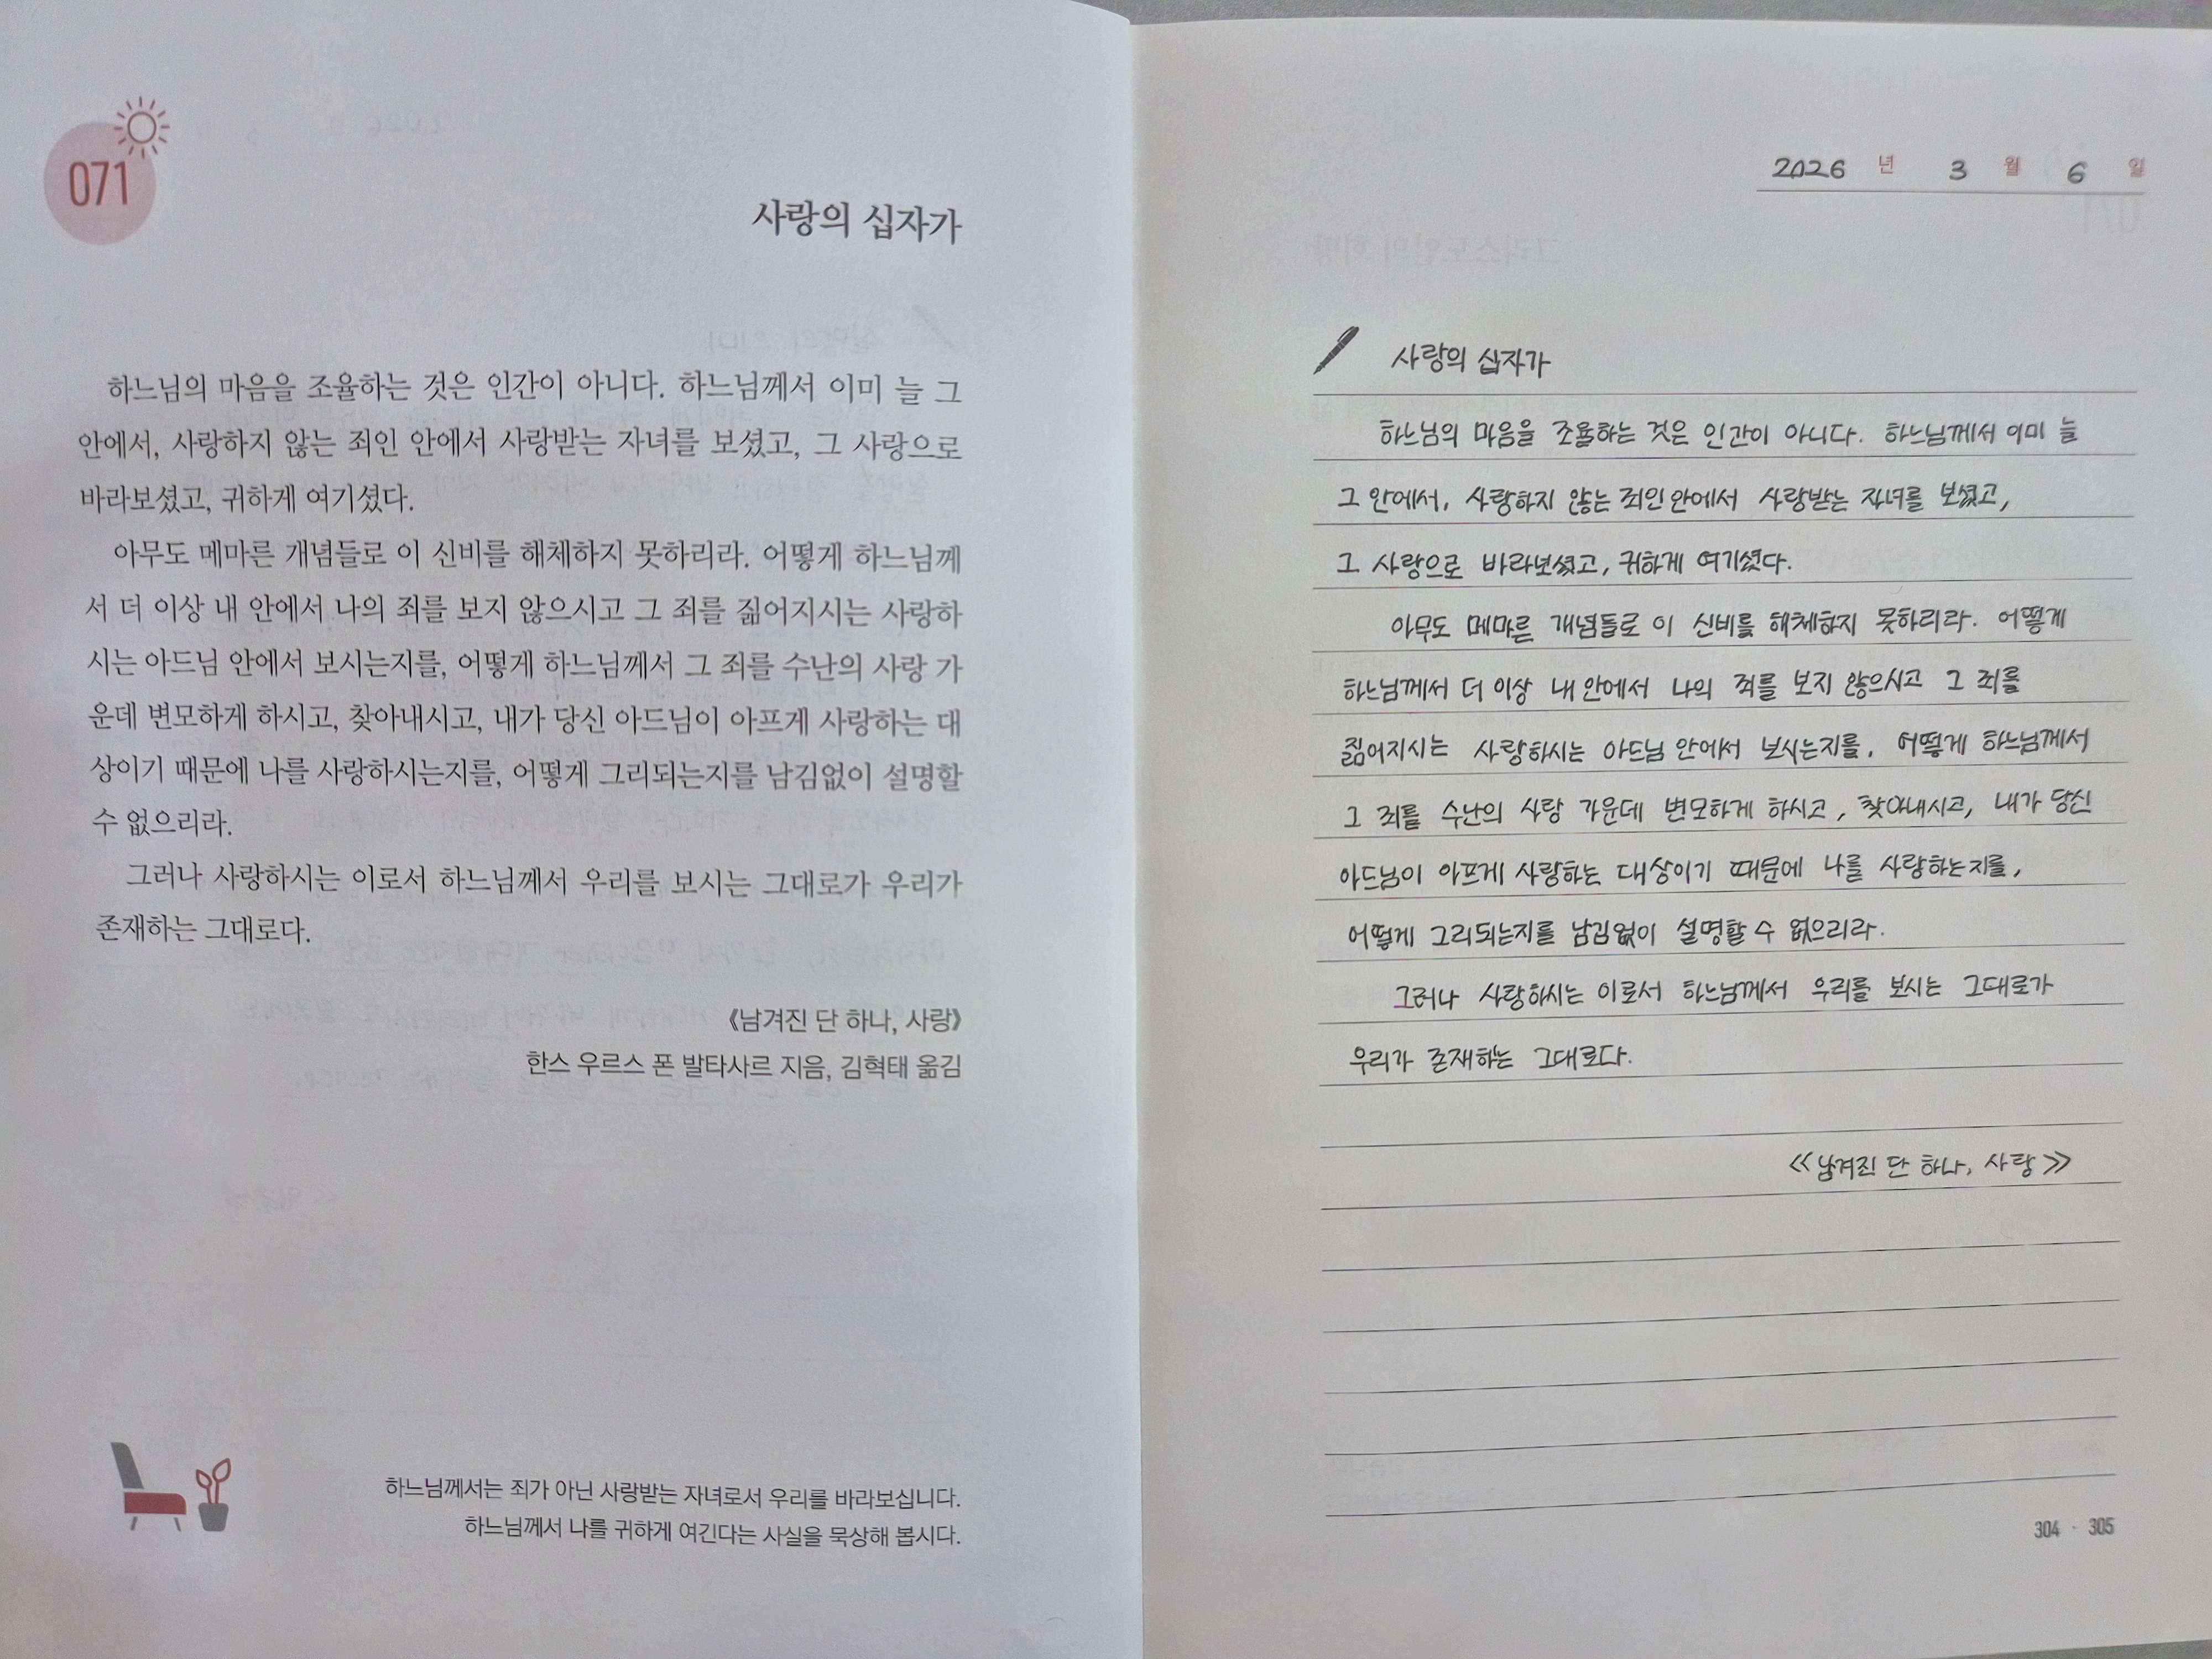 071
사랑의 십자가
하느님의 마음을 조율하는 것은 인간이 아니다. 하느님께서 이미 늘 그
안에서, 사랑하지 않는 죄인 안에서 사랑받는 자녀를 보셨고, 그 사랑으로
바라보셨고, 귀하게 여기셨다.
아무도 메마른 개념들로 이 신비를 해체하지 못하리라. 어떻게 하느님께
서 더 이상 내 안에서 나의 죄를 보지 않으시고 그 죄를 짊어지시는 사랑하
시는 아드님 안에서 보시는지를, 어떻게 하느님께서 그 죄를 수난의 사랑 가
운데 변모하게 하시고, 찾아내시고, 내가 당신 아드님이 아프게 사랑하는 대
상이기 때문에 나를 사랑하시는지를, 어떻게 그리되는지를 남김없이 설명할
수 없으리라.
그러나 사랑하시는 이로서 하느님께서 우리를 보시는 그대로가 우리가
존재하는 그대로다.
《남겨진 단 하나, 사랑》
한스 우르스 폰 발타사르 지음, 김혁태 옮김
하느님께서는 죄가 아닌 사랑받는 자녀로서 우리를 바라보십니다.
하느님께서 나를 귀하게 여긴다는 사실을 묵상해 봅시다.
2026 년 3 월 6 일
사랑의 십자가
하느님의 마음을 조율하는 것은 인간이 아니다. 하느님께서 이미 늘
그 안에서, 사랑하지 않는 죄인 안에서 사랑받는 자녀를 보셨고,
그 사랑으로 바라보셨고, 귀하게 여기셨다.
아무도 메마른 개념들로 이 신비를 해체하지 못하리라. 어떻게
하느님께서 더 이상 내 안에서 나의 죄를 보지 않으시고 그 죄를
짊어지시는 사랑하시는 아드님 안에서 보시는지를, 어떻게 하느님께서
그 죄를 수난의 사랑 가운데 변모하게 하시고, 찾아내시고, 내가 당신
아드님이 아프게 사랑하는 대상이기 때문에 나를 사랑하는지를,
어떻게 그리되는지를 남김없이 설명할 수 없으리라.
그러나 사랑하시는 이로서 하느님께서 우리를 보시는 그대로가
우리가 존재하는 그대로다.
≪남겨진 단 하나, 사랑≫
304 · 305